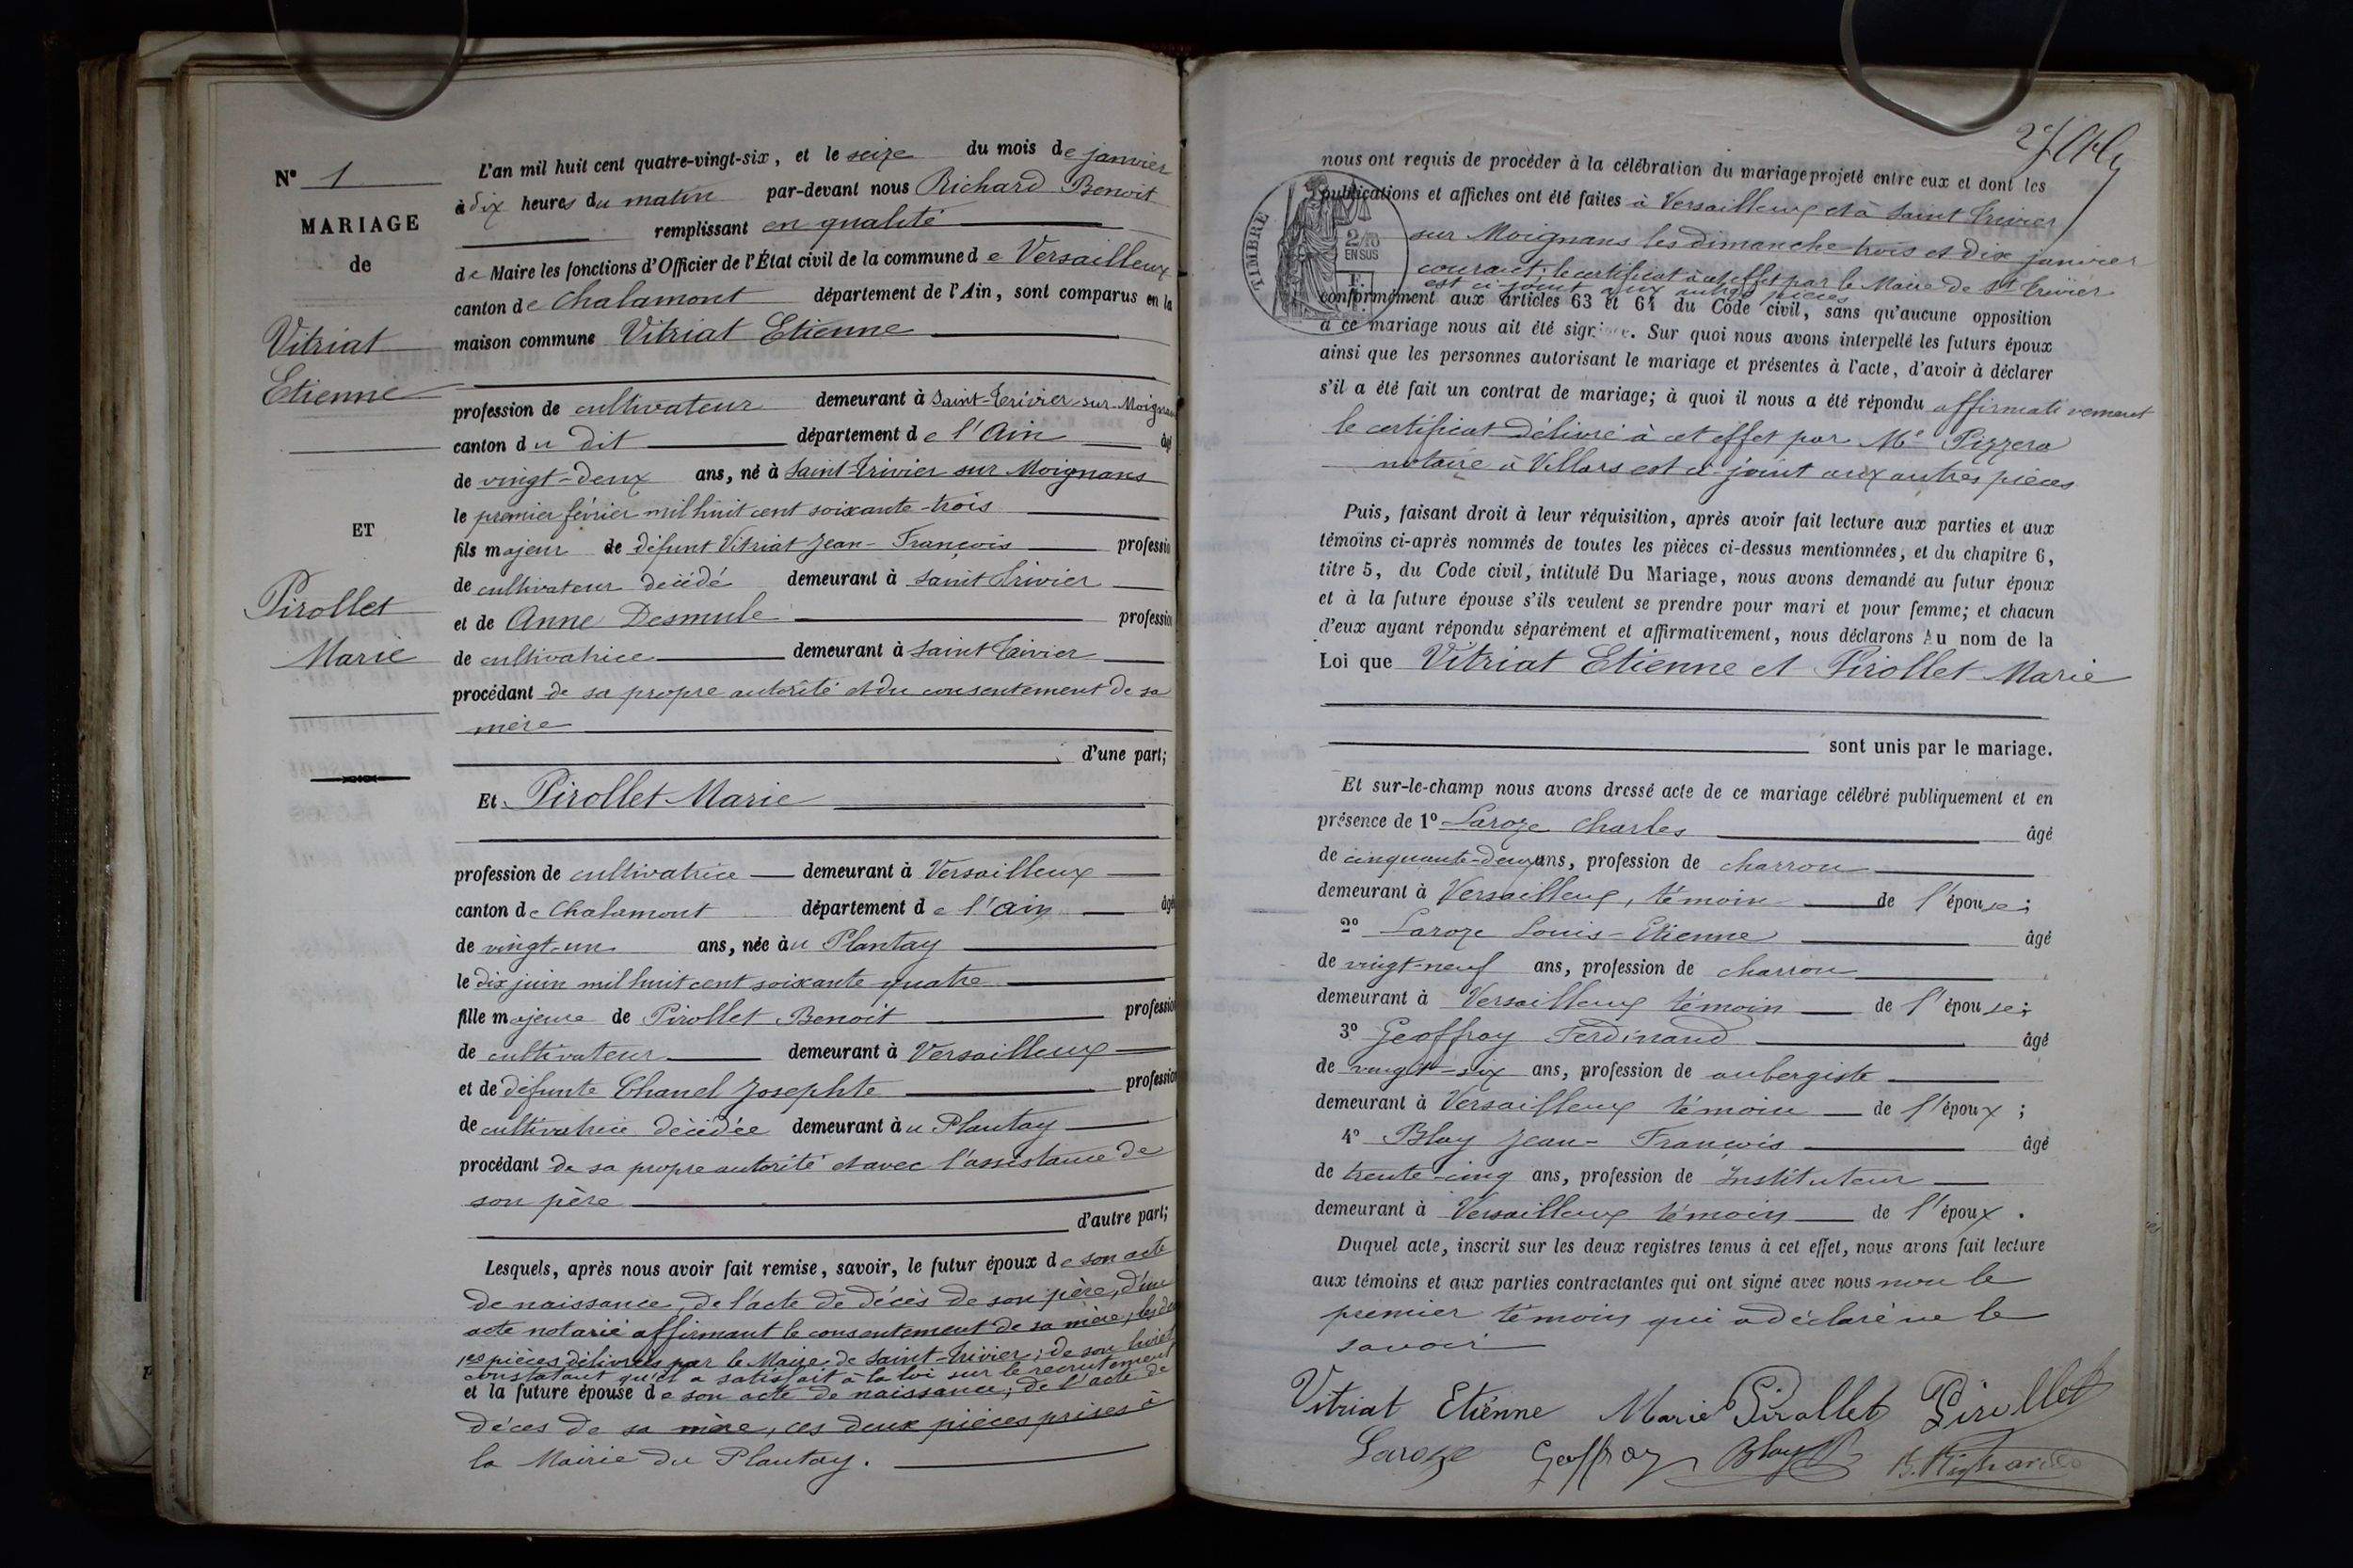 N° 1
MARIAGE
de
Vitriat
Etienne
ET
Pirollet
Marie
L'an mil huit cent quatre-vingt-six, et le seize du mois de janvier
à dix heures du matin par-devant nous Richard Benoit
remplissant en qualité
de Maire les fonctions d'Officier de l'État civil de la commune de Versailleux
canton de Chalamont département de l'Ain, sont comparus en la
maison commune Vitriat Etienne
profession de cultivateur demeurant à Saint-Trivier-sur-Moignans
canton du dit département de l'Ain âgé
de vingt-deux ans, né à Saint-Trivier sur Moignans
le premier février mil huit cent soixante-trois
fils majeur de défunt Vitriat Jean-François profession
de cultivateur décédé demeurant à Saint Trivier
et de Anne Desmule profession
de cultivatrice demeurant à Saint Trivier
procédant de sa propre autorité et du consentement de sa
mère
d'une part;
Et Pirollet Marie
profession de cultivatrice demeurant à Versailleux
canton de Chalamont département de l'Ain âgé
de vingt-un ans, née au Plantay
le dix juin mil huit cent soixante quatre
fille majeure de Pirollet Benoit profession
de cultivateur demeurant à Versailleux
et de défunte Chanel Josephte profession
de cultivatrice décédée demeurant au Plantay
procédant de sa propre autorité et avec l'assistance de
son père
d'autre part;
Lesquels, après nous avoir fait remise, savoir, le futur époux de son acte
de naissance, de l'acte de décès de son père, d'un
acte notarié affirmant le consentement de sa mère, les deux
1res pièces délivrées par le Maire de Saint-Trivier; de son livret
constatant qu'il a satisfait à la loi sur le recrutement
et la future épouse de son acte de naissance; de l'acte de
décès de sa mère, ces deux pièces prises à
la Mairie du Plantay.
nous ont requis de procéder à la célébration du mariage projeté entre eux et dont les
publications et affiches ont été faites à Versailleux et à Saint Trivier
sur Moignans les dimanche trois et dix janvier
courant; le certificat à cet effet par le Maire de St Trivier
est ci-joint aux autres pièces
conformément aux articles 63 et 64 du Code civil, sans qu'aucune opposition
à ce mariage nous ait été signifiée. Sur quoi nous avons interpellé les futurs époux
ainsi que les personnes autorisant le mariage et présentes à l'acte, d'avoir à déclarer
s'il a été fait un contrat de mariage; à quoi il nous a été répondu affirmativement
le certificat délivré à cet effet par Me Pizzera
notaire à Villars est ci-joint aux autres pièces
TIMBRE
2/10
EN SUS
Puis, faisant droit à leur réquisition, après avoir fait lecture aux parties et aux
témoins ci-après nommés de toutes les pièces ci-dessus mentionnées, et du chapitre 6,
titre 5, du Code civil, intitulé Du Mariage, nous avons demandé au futur époux
et à la future épouse s'ils veulent se prendre pour mari et pour femme; et chacun
d'eux ayant répondu séparément et affirmativement, nous déclarons Au nom de la
Loi que Vitriat Etienne et Pirollet Marie
sont unis par le mariage.
Et sur-le-champ nous avons dressé acte de ce mariage célébré publiquement et en
présence de 1° Laroze Charles âgé
de cinquante-deux ans, profession de charron
demeurant à Versailleux, témoin de l'épouse;
2° Laroze Louis-Etienne âgé
de vingt-neuf ans, profession de charron
demeurant à Versailleux témoin de l'épouse;
3° Geoffray Ferdinand âgé
de vingt-six ans, profession de aubergiste
demeurant à Versailleux témoin de l'époux;
4° Blay Jean-François âgé
de trente-cinq ans, profession de Instituteur
demeurant à Versailleux témoin de l'époux.
Duquel acte, inscrit sur les deux registres tenus à cet effet, nous avons fait lecture
aux témoins et aux parties contractantes qui ont signé avec nous non le
premier témoin qui a déclaré ne le
savoir
Vitriat Etienne Marie Pirollet Pirollet
Laroze Geoffray Blay B. Richard